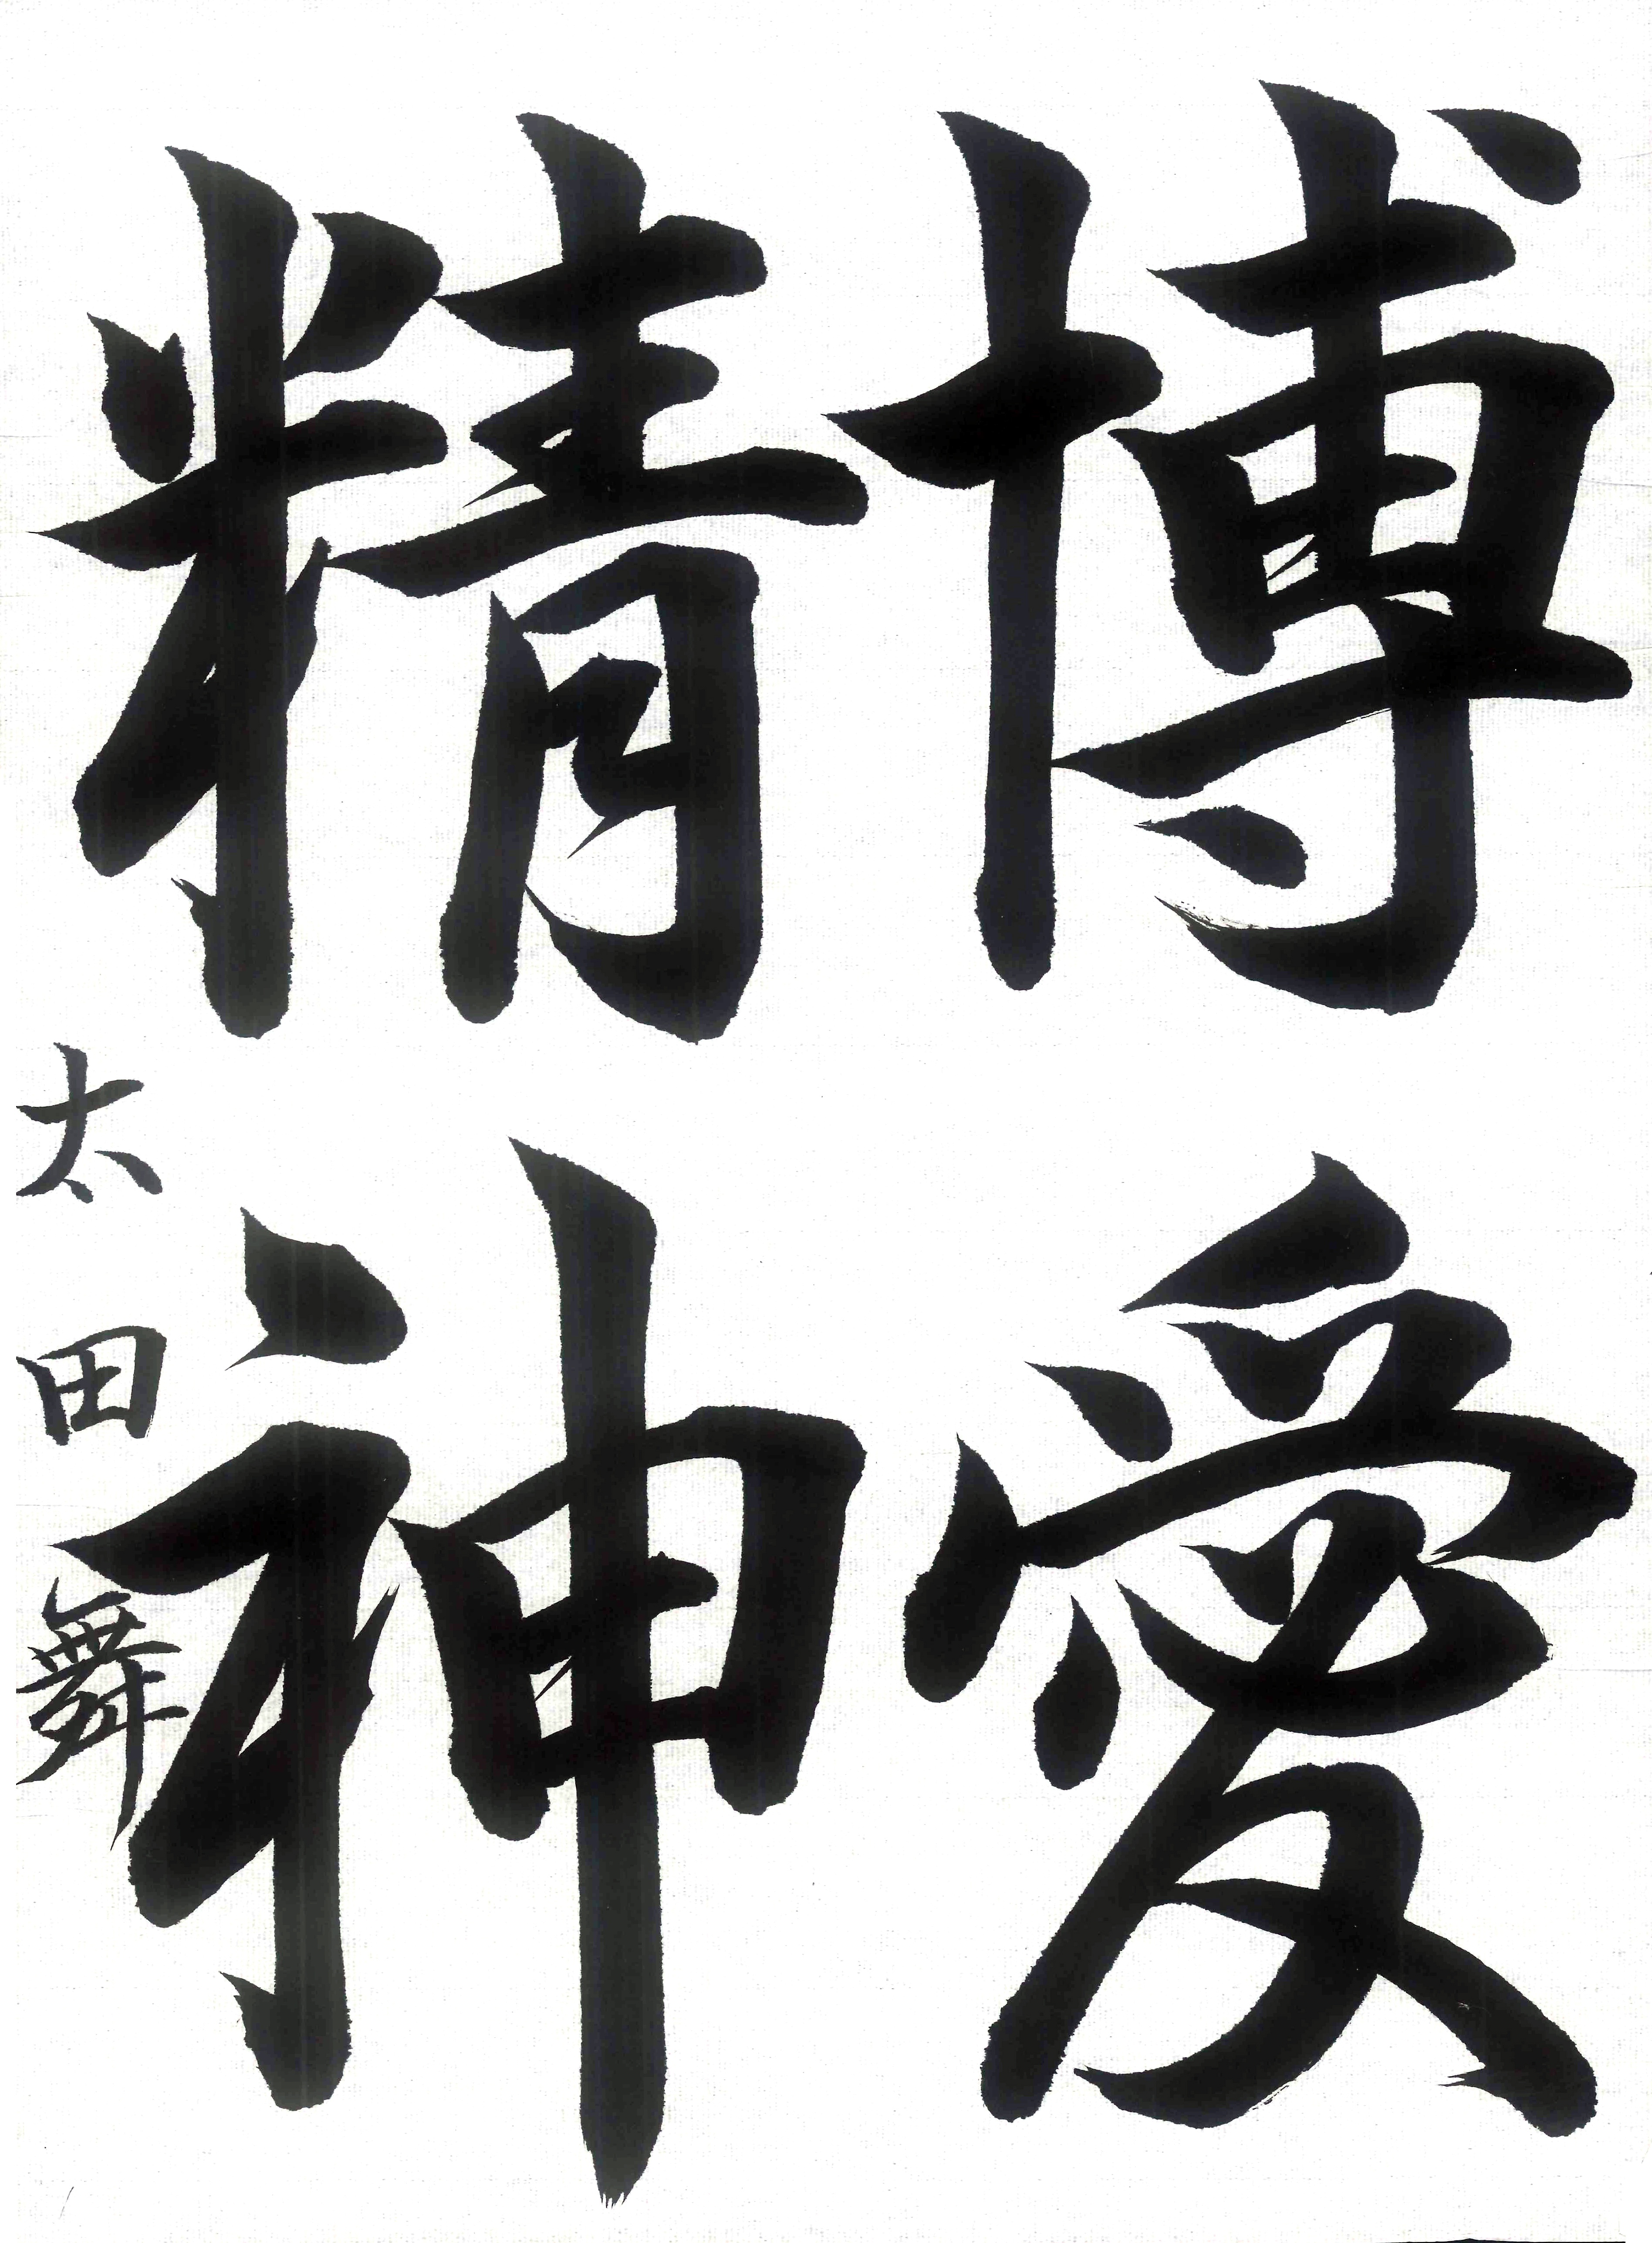 博愛
精神
太田舞